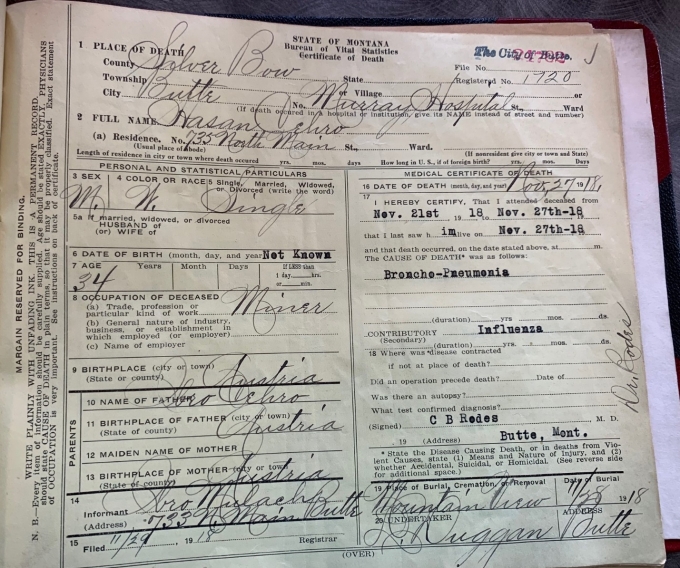 STATE OF MONTANA
Bureau of Vital Statistics
Certificate of Death
The City of Butte.
1 PLACE OF DEATH
County Silver Bow
State
File No.
Township
or Village
Registered No. 1920
City Butte
No. Murray Hospital St., Ward
(If death occurred in a hospital or institution, give its NAME instead of street and number)
2 FULL NAME Hasan
(a) Residence. No. 735 North Main St., Ward.
(Usual place of abode) (If nonresident give city or town and State)
Length of residence in city or town where death occurred yrs. mos. days How long in U. S., if of foreign birth? yrs. mos. Days
PERSONAL AND STATISTICAL PARTICULARS
3 SEX M.
4 COLOR OR RACE W.
5 Single, Married, Widowed, or Divorced (write the word) Single
5a If married, widowed, or divorced
HUSBAND of
(or) WIFE of
6 DATE OF BIRTH (month, day, and year) Not Known
7 AGE Years Months Days If LESS than
1 day, hrs.
or min.
34
8 OCCUPATION OF DECEASED
(a) Trade, profession or
particular kind of work Miner
(b) General nature of industry,
business, or establishment in
which employed (or employer)
(c) Name of employer
9 BIRTHPLACE (city or town)
(State or county) Austria
10 NAME OF FATHER
11 BIRTHPLACE OF FATHER (city or town)
(State of county) Austria
12 MAIDEN NAME OF MOTHER
13 BIRTHPLACE OF MOTHER (city or town)
(State or county) Austria
PARENTS
14
Informant
(Address) 733 N. Main Butte
15
Filed 11/29, 1918 Registrar
MEDICAL CERTIFICATE OF DEATH
16 DATE OF DEATH (month, day, and year) Nov, 27 1918,
17
I HEREBY CERTIFY, That I attended deceased from
Nov. 21st 1918 Nov. 27th-18
that I last saw h im live on Nov. 27th-18
and that death occurred, on the date stated above, at m.
The CAUSE OF DEATH* was as follows:
Broncho-Pneumonia
(duration) yrs. mos. ds.
CONTRIBUTORY Influenza
(Secondary) (duration) yrs. mos. ds.
18 Where was disease contracted
if not at place of death?
Did an operation precede death? Date of
Was there an autopsy?
What test confirmed diagnosis?
(Signed) C B Rodes M. D.
, 19 (Address) Butte, Mont.
Dr. Rodes
* State the Disease Causing Death, or in deaths from Violent Causes, state (1) Means and Nature of Injury, and (2) whether Accidental, Suicidal, or Homicidal. (See reverse side for additional space.)
19 Place of Burial, Cremation, or Removal Date of Burial
Mountain View 11/28 1918
20 UNDERTAKER ADDRESS
Duggan Butte
(OVER)
MARGIN RESERVED FOR BINDING.
WRITE PLAINLY WITH UNFADING INK. THIS IS A PERMANENT RECORD.
N. B.—Every item of information should be carefully supplied. Age should be stated EXACTLY. PHYSICIANS
should state CAUSE OF DEATH in plain terms, so that it may be properly classified. Exact statement
of OCCUPATION is very important. See instructions on back of certificate.